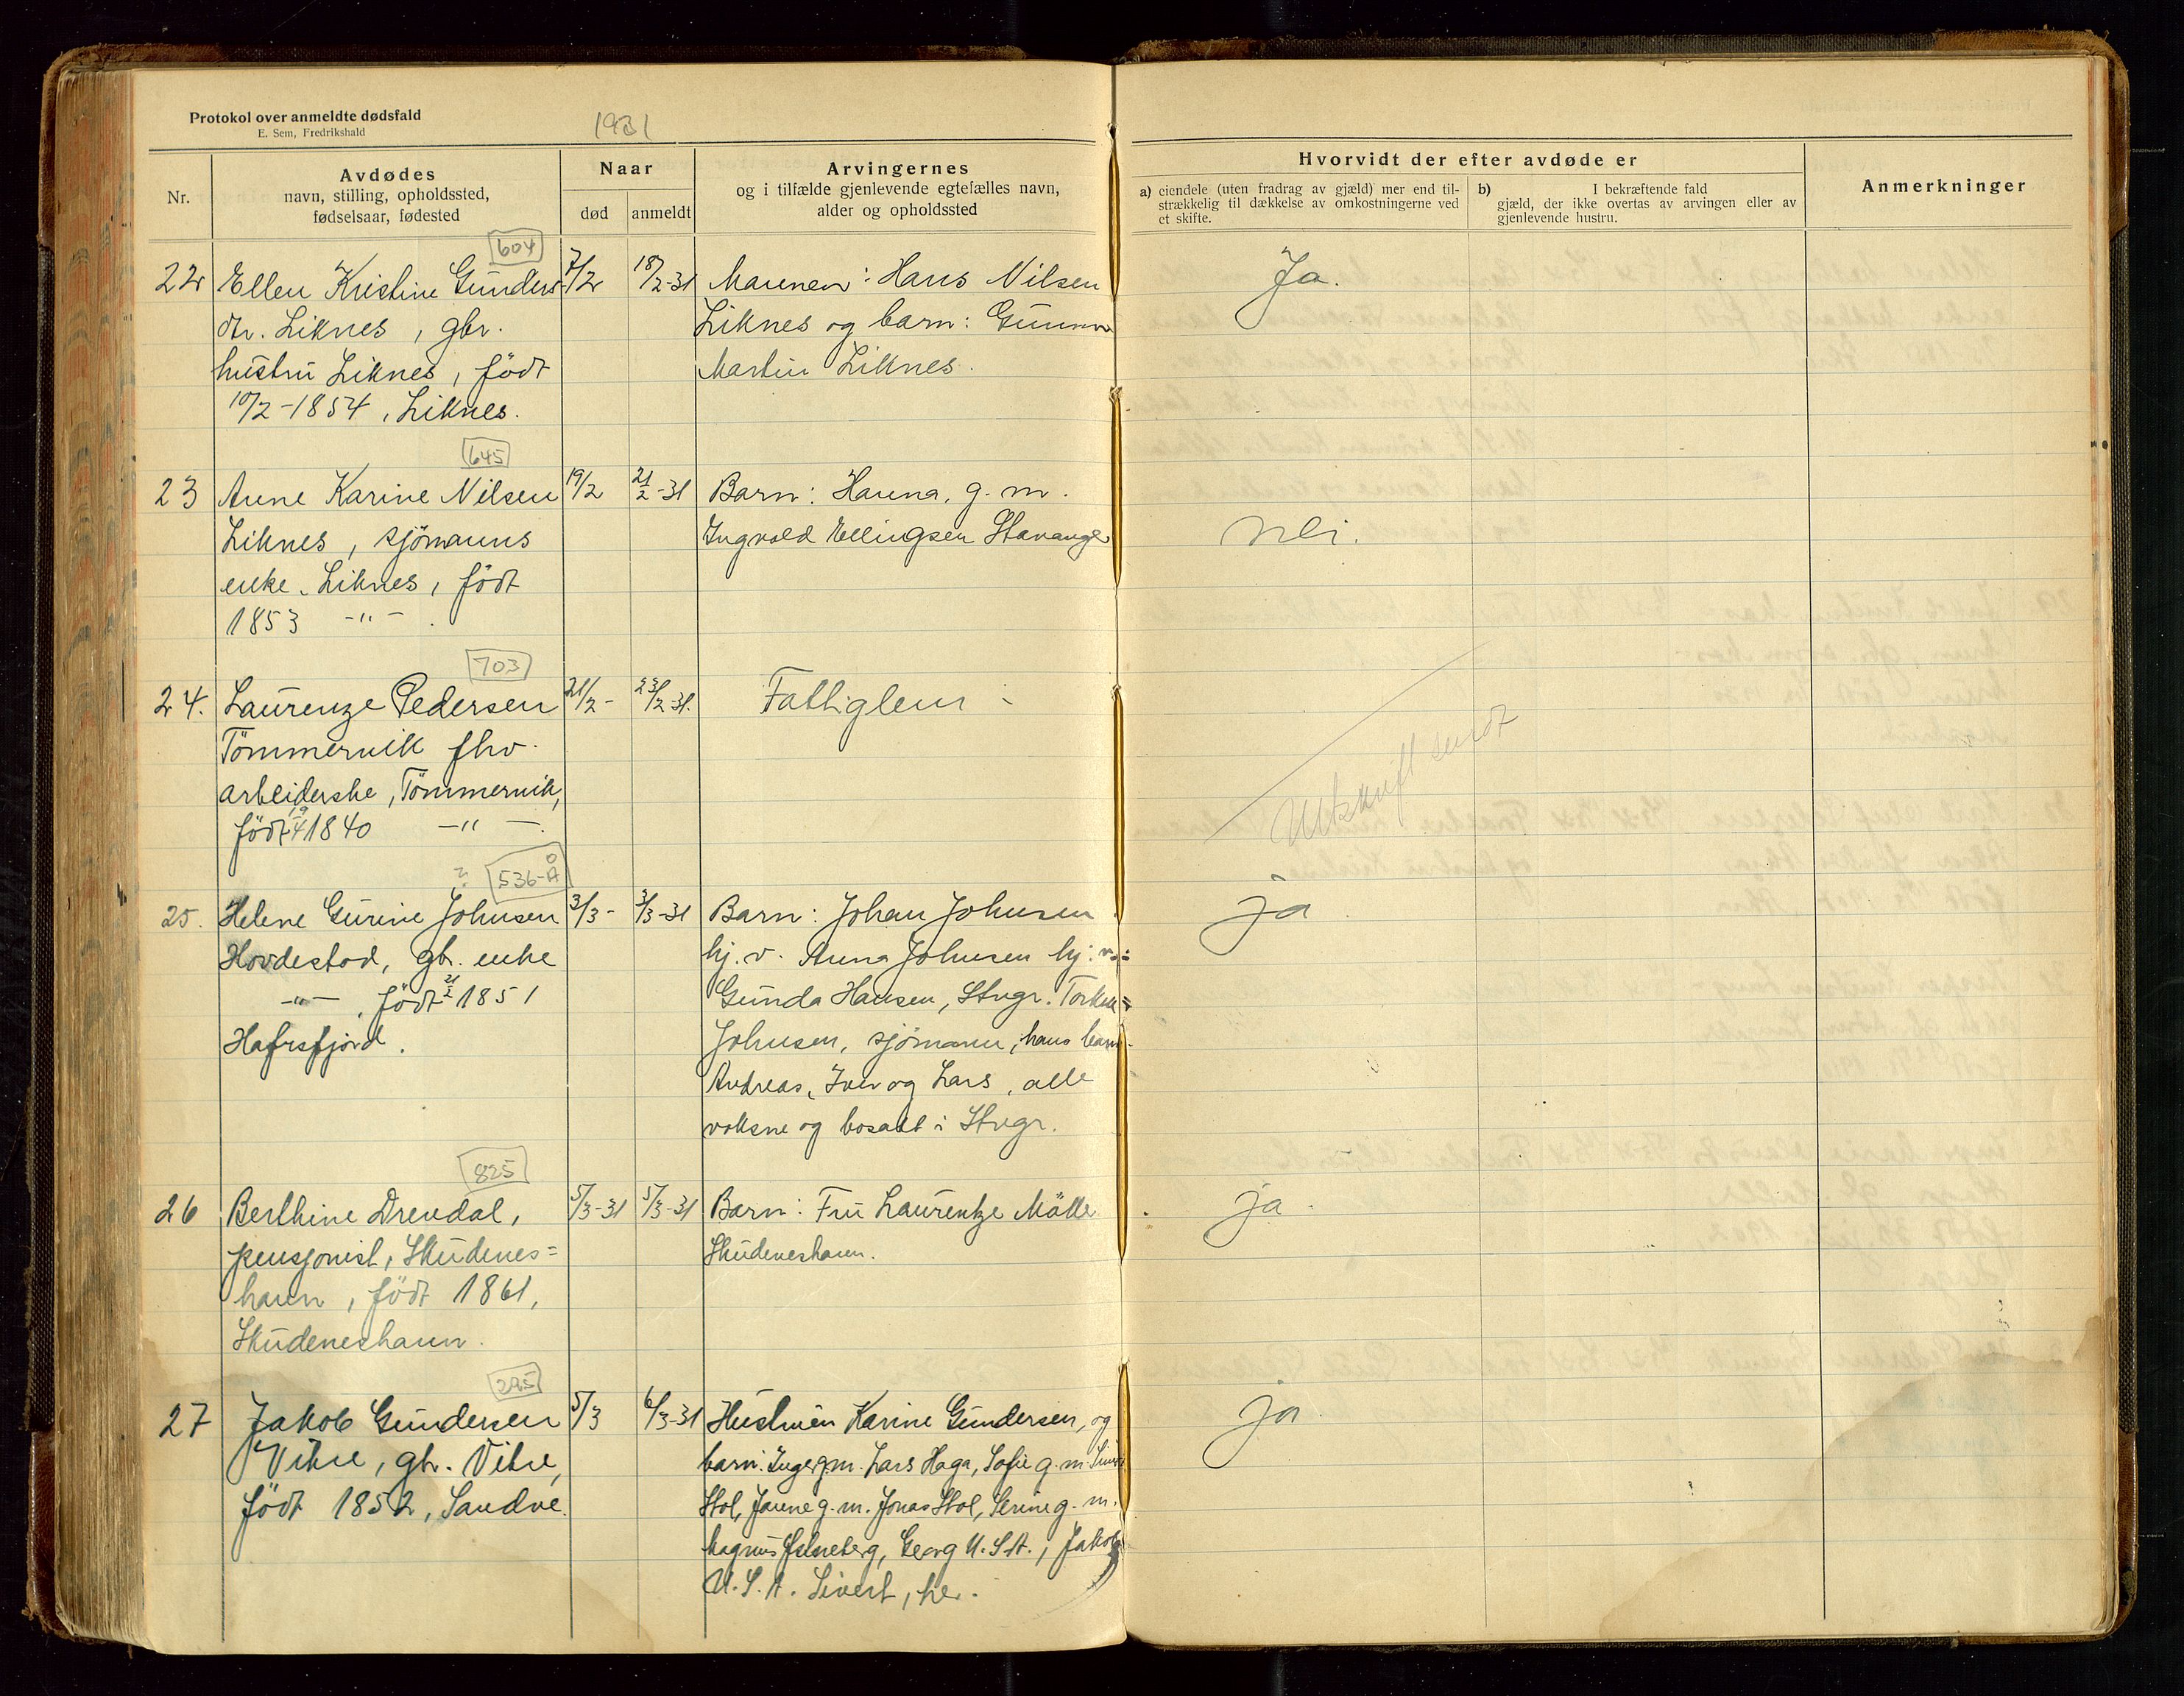 Protokol over anmeldte dødsfald
E. Sem, Fredrikshald
1931
Nr.
Avdødes
navn, stilling, opholdssted,
fødselsaar, fødested
Naar
død
anmeldt
Arvingernes
og i tilfælde gjenlevende egtefælles navn,
alder og opholdssted
Hvorvidt der efter avdøde er
a) eiendele (uten fradrag av gjæld) mer end til-
strækkelig til dækkelse av omkostningerne ved
et skifte.
b) I bekræftende fald
gjæld, der ikke overtas av arvingen eller av
gjenlevende hustru.
Anmerkninger
604
22 Ellen Kristine Gunders
dtr. Liknes, gbr.
hustru Liknes, født
10/2-1854, Liknes.
7/2
18/2-31
Mannen: Hans Nilsen
Liknes og barn: Gunnar
Martin Liknes.
Ja.
645
23 Anne Karine Nilsen
Liknes, sjömanns
enke. Liknes, født
1853 -"-.
19/2
21/2-31
Barn: Hanna, g. m.
Ingvald Ellingsen Stavanger
nei.
703
24. Laurenze Pedersen
Tömmervik fhv.
arbeiderske, Tömmervik,
født 19/4 1840 -"-.
21/2-
23/2-31.
Fattiglem
Utskrift sendt
? 536-Å
25. Helene Gurine Johnsen
Hovdestad, gb. enke
-"-, født 21/2 1851
Hafrsfjord.
3/3-
3/3-31
Barn: Johan Johnsen
hj. v. Anna Johnsen hj: v.:
Gunda Hansen, Stvgr.
Johnsen, sjömann, hans barn
Andreas, Iver og Lars, alle
voksne og bosatt i Stvgr.
ja
825
26 Berthine Drevdal,
pensjonist, Skudenes=
havn, født 1861,
Skudeneshavn.
5/3-31
5/3-31
Barn: Fru Laurentze
Skudeneshavn.
ja.
295
27 Jakob Gundersen
Vikre, gbr. Vikre,
født 1852, Sandve.
5/3
6/3-31
Hustruen Karine Gundersen, og
barn: Inger g.m. Lars Haga, Sofie g. m.
Stol, Janne g. m. Jonas Stol, Serine g. m.
Magnus Georg U.S.A., Jakob
U.S.A. Sivert, her.
ja.